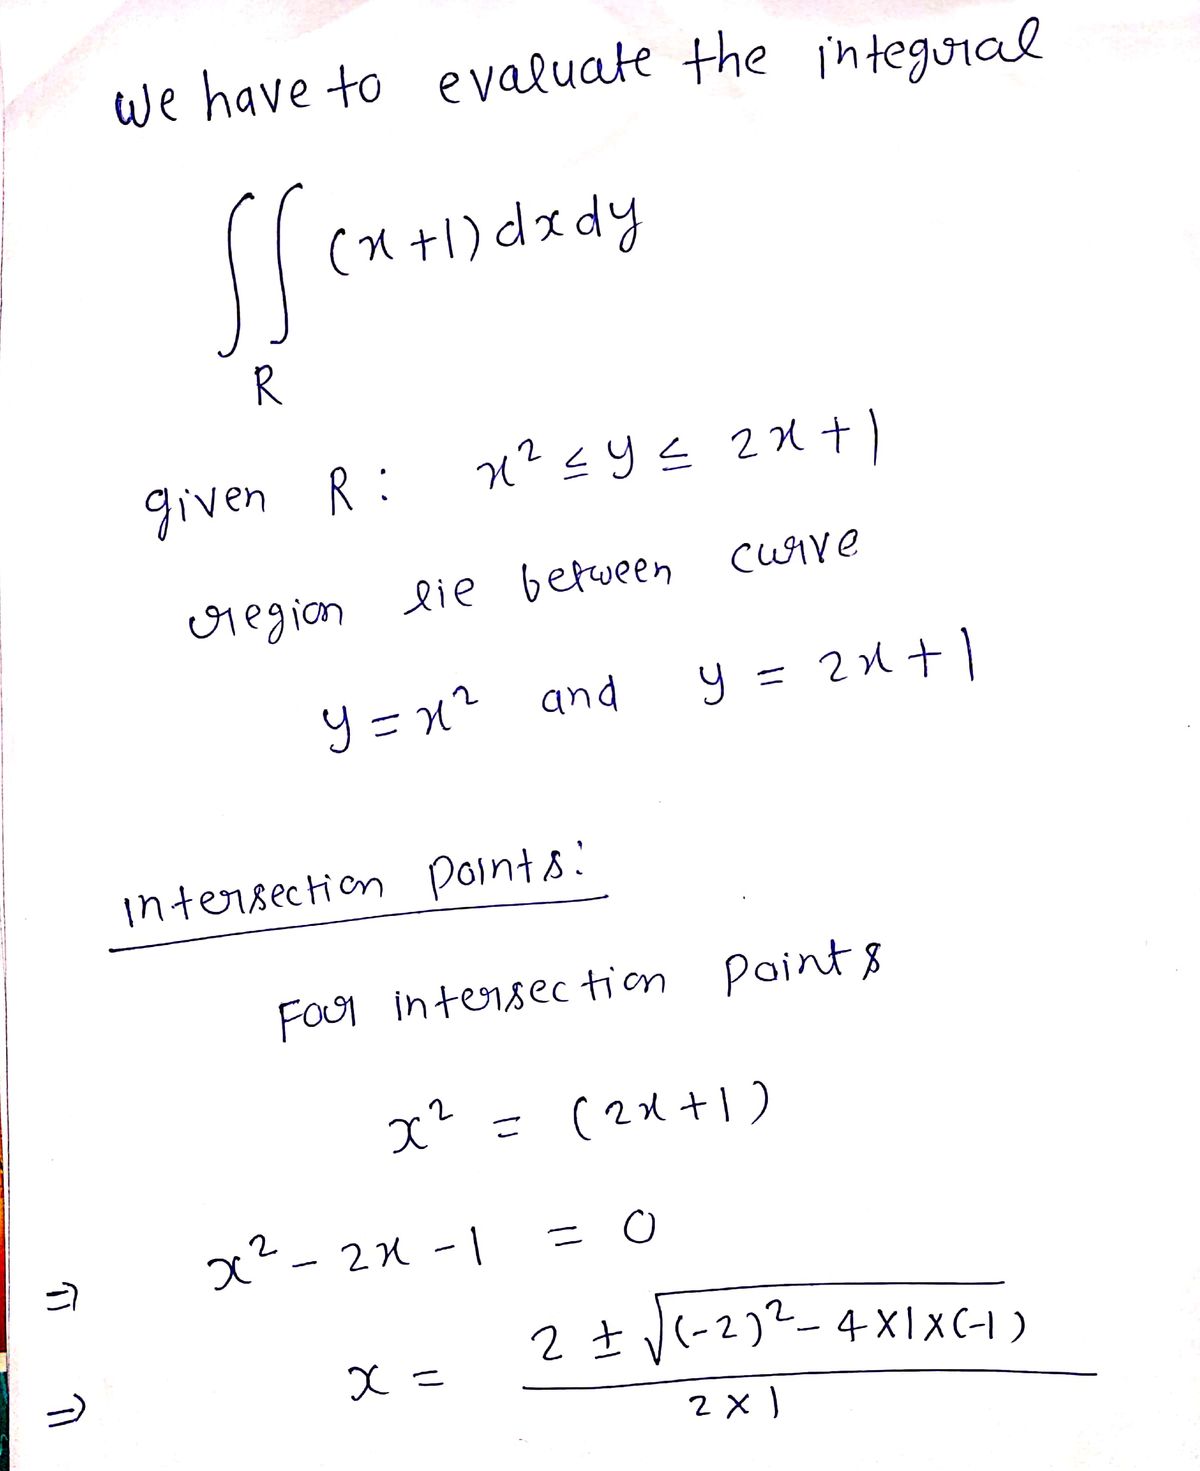 We have to evaluate the integral
∬ (x+1) dx dy
R
given R : x² ≤ y ≤ 2x+1
region lie between curve
y = x² and y = 2x+1
intersection points:
For intersection points
x² = (2x+1)
⇒ x² - 2x - 1 = 0
⇒ x = \frac{2 ± √((-2)² - 4×1×(-1))}{2×1}